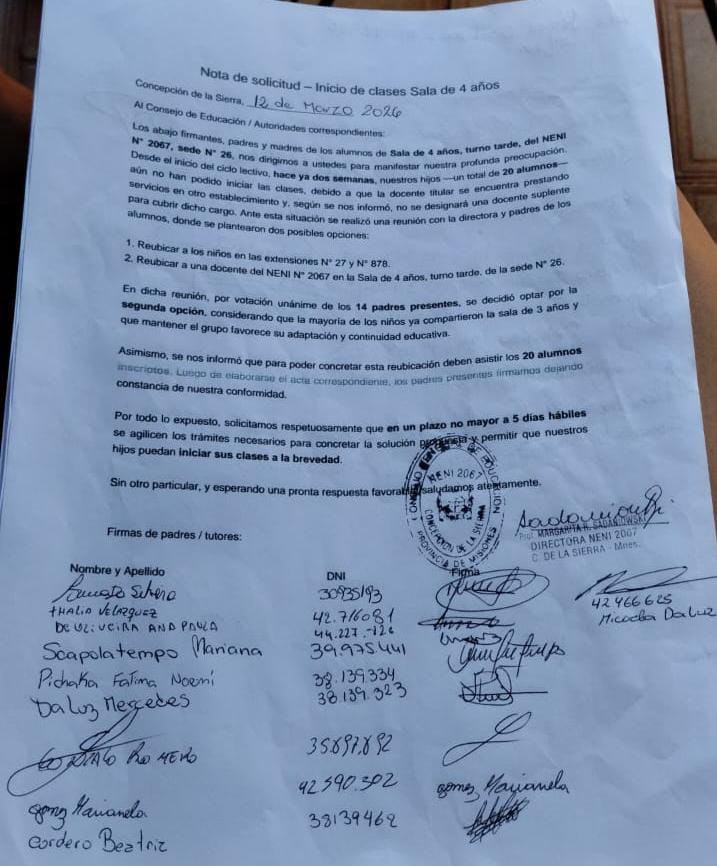 Nota de solicitud – Inicio de clases Sala de 4 años
Concepción de la Sierra, 12 de Marzo 2026
Al Consejo de Educación / Autoridades correspondientes:
Los abajo firmantes, padres y madres de los alumnos de Sala de 4 años, turno tarde, del NENI
N° 2067, sede N° 26, nos dirigimos a ustedes para manifestar nuestra profunda preocupación.
Desde el inicio del ciclo lectivo, hace ya dos semanas, nuestros hijos —un total de 20 alumnos—
aún no han podido iniciar las clases, debido a que la docente titular se encuentra prestando
servicios en otro establecimiento y, según se nos informó, no se designará una docente suplente
para cubrir dicho cargo. Ante esta situación se realizó una reunión con la directora y padres de los
alumnos, donde se plantearon dos posibles opciones:
1. Reubicar a los niños en las extensiones N° 27 y N° 878.
2. Reubicar a una docente del NENI N° 2067 en la Sala de 4 años, turno tarde, de la sede N° 26.
En dicha reunión, por votación unánime de los 14 padres presentes, se decidió optar por la
segunda opción, considerando que la mayoría de los niños ya compartieron la sala de 3 años y
que mantener el grupo favorece su adaptación y continuidad educativa.
Asimismo, se nos informó que para poder concretar esta reubicación deben asistir los 20 alumnos
inscriptos. Luego de elaborarse el acta correspondiente, los padres presentes firmamos dejando
constancia de nuestra conformidad.
Por todo lo expuesto, solicitamos respetuosamente que en un plazo no mayor a 5 días hábiles
se agilicen los trámites necesarios para concretar la solución y permitir que nuestros
hijos puedan iniciar sus clases a la brevedad.
Sin otro particular, y esperando una pronta respuesta favorable, saludamos atentamente.
NENI 2067
CONCEPCION DE LA SIERRA
PROVINCIA DE MISIONES
Prof. MARGARITA R. SADANIOWSKI
DIRECTORA NENI 2067
C. DE LA SIERRA - Mnes.
Firmas de padres / tutores:
Nombre y Apellido DNI Firma
30935193
THALIA VELAZQUEZ 42.716081
DE OLIVEIRA ANA PAULA 44.227.126
42466625
Micaela Da Luz
Scapolatempo Mariana 39,975441
Pichaka Fatima Noemí 38.139.334
Da Luz Mercedes 38.139.323
GONZALO ROMERO 35697892
gomez Marianela 42590.302 gomez Marianela
Cordero Beatriz 38139462